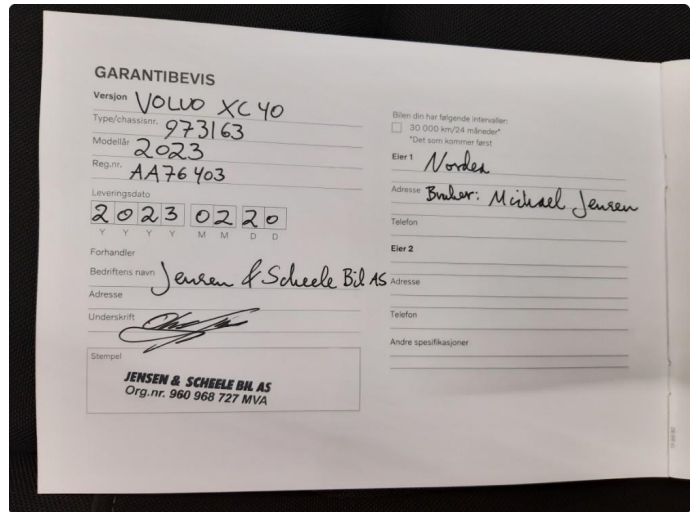 GARANTIBEVIS
Versjon VOLVO XC40
Type/chassisnr. 973163
Modellår 2023
Reg.nr. AA76403
Leveringsdato
2 0 2 3 0 2 2 0
Y Y Y Y M M D D
Forhandler
Bedriftens navn Jensen & Scheele Bil AS
Adresse
Underskrift
Stempel
JENSEN & SCHEELE BIL AS
Org.nr. 960 968 727 MVA
Bilen din har følgende intervaller:
30 000 km/24 måneder*
*Det som kommer først
Eier 1 Nordea
Adresse Bruker: Michael Jensen
Telefon
Eier 2
Adresse
Telefon
Andre spesifikasjoner